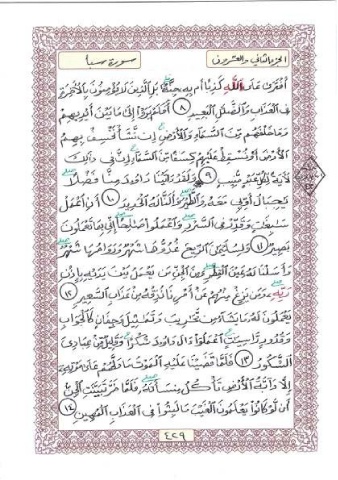 الجزء الثاني والعشرون
سورة سبأ
أفترى على الله كذبا أم به جنة بل الذين لا يؤمنون بالآخرة
في العذاب والضلال البعيد ٨ أفلم يروا إلى ما بين أيديهم
وما خلفهم من السماء والأرض إن نشأ نخسف بهم
الأرض أو نسقط عليهم كسفا من السماء إن في ذلك
لآية لكل عبد منيب ٩ ولقد آتينا داود منا فضلا
يا جبال أوبي معه والطير وألنا له الحديد ١٠ أن اعمل
سابغات وقدر في السرد واعملوا صالحا إني بما تعملون
بصير ١١ ولسليمان الريح غدوها شهر ورواحها شهر
وأسلنا له عين القطر ومن الجن من يعمل بين يديه بإذن
ربه ومن يزغ منهم عن أمرنا نذقه من عذاب السعير ١٢
يعملون له ما يشاء من محاريب وتماثيل وجفان كالجواب
وقدور راسيات اعملوا آل داود شكرا وقليل من عبادي
الشكور ١٣ فلما قضينا عليه الموت ما دلهم على موته
إلا دابة الأرض تأكل منسأته فلما خر تبينت الجن
أن لو كانوا يعلمون الغيب ما لبثوا في العذاب المهين ١٤
٤٢٩